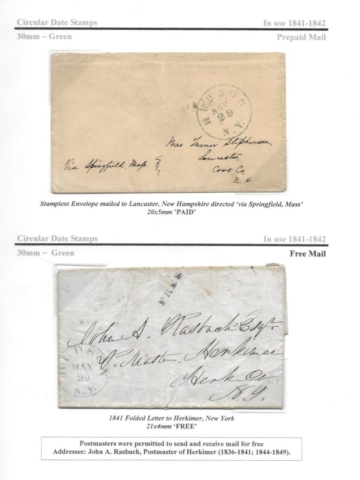 Circular Date Stamps In use 1841-1842
30mm ~ Green Prepaid Mail
HUDSON
29
N.Y.
Mrs Turner Stephenson
Lancaster
Coos Co
Via Springfield Mass
Stampless Envelope mailed to Lancaster, New Hampshire directed ‘via Springfield, Mass’
20x5mm ‘PAID’
Circular Date Stamps In use 1841-1842
30mm ~ Green Free Mail
FREE
HUDSON
MAY
29
N.Y.
John A. Rasbach Esqr
P. Master Herkimer
Herk Co
N.Y.
1841 Folded Letter to Herkimer, New York
21x4mm ‘FREE’
Postmasters were permitted to send and receive mail for free
Addressee: John A. Rasbach, Postmaster of Herkimer (1836-1841; 1844-1849).